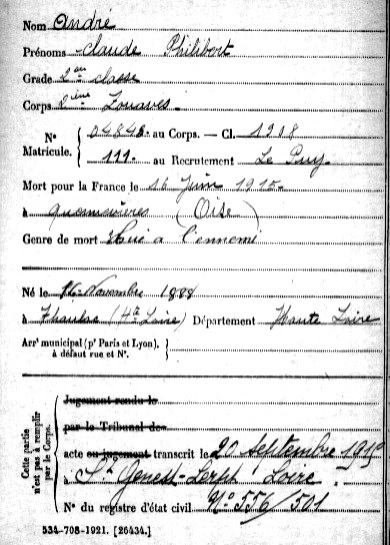 Nom André
Prénoms Claude Philibert
Grade 2me classe
Corps 2ème Zouaves
N° Matricule. 04848 au Corps. — Cl. 1918
111 au Recrutement Le Puy
Mort pour la France le 16 Juin 1915
à (Oise)
Genre de mort Tué à l'ennemi
Né le 16 Novembre 1888
à (Hte Loire) Département Haute Loire
Arrt municipal (pr Paris et Lyon), à défaut rue et N°.
Cette partie n'est pas à remplir par le Corps.
Jugement rendu le
par le Tribunal de
acte ou jugement transcrit le 20 septembre 1915
à St Genest-Lerpt Loire.
N° du registre d'état civil N° 556/501
534-708-1921. [26434.]